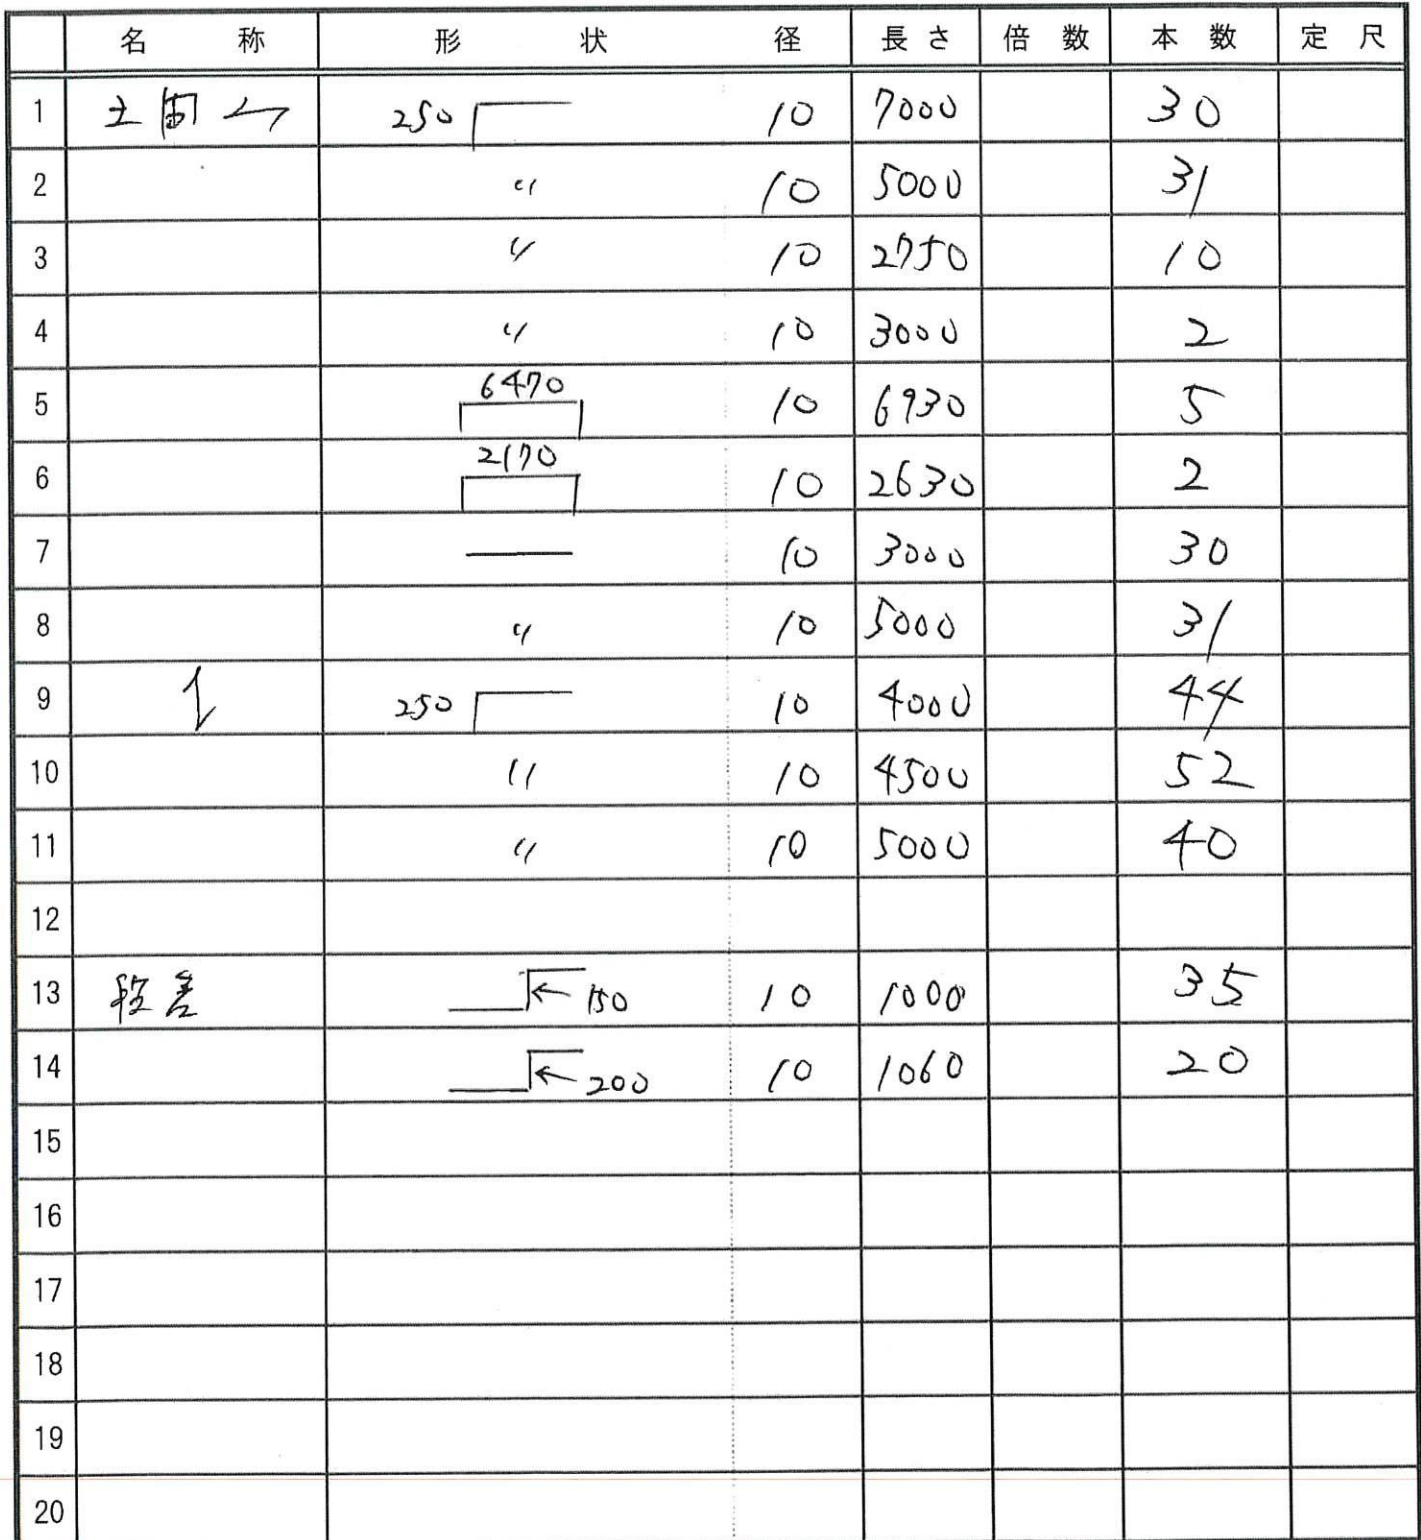 名 称 形 状 径 長さ 倍 数 本 数 定 尺
1 土間 250 10 7000 30
2 〃 10 5000 31
3 〃 10 2750 10
4 〃 10 3000 2
5 6470 10 6930 5
6 2170 10 2630 2
7 10 3000 30
8 〃 10 5000 31
9 250 10 4000 44
10 〃 10 4500 52
11 〃 10 5000 40
12
13 段差 ← 150 10 1000 35
14 ← 200 10 1060 20
15
16
17
18
19
20